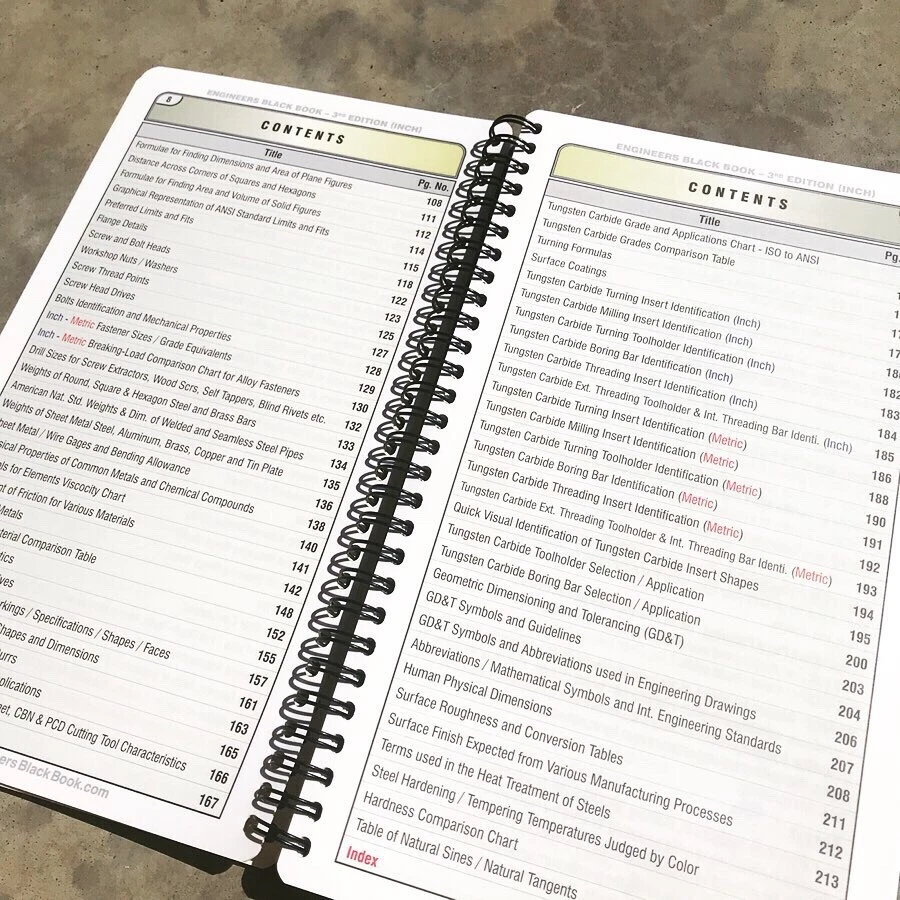 8
ENGINEERS BLACK BOOK – 3RD EDITION (INCH)
CONTENTS
Title
Pg. No.
Formulae for Finding Dimensions and Area of Plane Figures
Distance Across Corners of Squares and Hexagons
Formulae for Finding Area and Volume of Solid Figures
Graphical Representation of ANSI Standard Limits and Fits
Preferred Limits and Fits
Flange Details
Screw and Bolt Heads
Workshop Nuts / Washers
Screw Thread Points
Screw Head Drives
Bolts Identification and Mechanical Properties
Inch - Metric Fastener Sizes / Grade Equivalents
Inch - Metric Breaking-Load Comparison Chart for Alloy Fasteners
Drill Sizes for Screw Extractors, Wood Scrs, Self Tappers, Blind Rivets etc.
Weights of Round, Square & Hexagon Steel and Brass Bars
American Nat. Std. Weights & Dim. of Welded and Seamless Steel Pipes
Weights of Sheet Metal Steel, Aluminum, Brass, Copper and Tin Plate
eet Metal / Wire Gages and Bending Allowance
sical Properties of Common Metals and Chemical Compounds
ls for Elements Viscosity Chart
nt of Friction for Various Materials
Metals
terial Comparison Table
tics
ves
rkings / Specifications / Shapes / Faces
hapes and Dimensions
urrs
plications
et, CBN & PCD Cutting Tool Characteristics
108
111
112
114
115
118
122
123
125
127
128
129
130
132
133
134
135
136
138
140
141
142
148
152
155
157
161
163
165
166
167
ersBlackBook.com
ENGINEERS BLACK BOOK – 3RD EDITION (INCH)
CONTENTS
Title
Pg.
Tungsten Carbide Grade and Applications Chart - ISO to ANSI
Tungsten Carbide Grades Comparison Table
Turning Formulas
Surface Coatings
Tungsten Carbide Turning Insert Identification (Inch)
Tungsten Carbide Milling Insert Identification (Inch)
Tungsten Carbide Turning Toolholder Identification (Inch)
Tungsten Carbide Boring Bar Identification (Inch)
Tungsten Carbide Threading Insert Identification (Inch)
Tungsten Carbide Ext. Threading Toolholder & Int. Threading Bar Identi. (Inch)
Tungsten Carbide Turning Insert Identification (Metric)
Tungsten Carbide Milling Insert Identification (Metric)
Tungsten Carbide Turning Toolholder Identification (Metric)
Tungsten Carbide Boring Bar Identification (Metric)
Tungsten Carbide Threading Insert Identification (Metric)
Tungsten Carbide Ext. Threading Toolholder & Int. Threading Bar Identi. (Metric)
Quick Visual Identification of Tungsten Carbide Insert Shapes
Tungsten Carbide Toolholder Selection / Application
Tungsten Carbide Boring Bar Selection / Application
Geometric Dimensioning and Tolerancing (GD&T)
GD&T Symbols and Guidelines
GD&T Symbols and Abbreviations used in Engineering Drawings
Abbreviations / Mathematical Symbols and Int. Engineering Standards
Human Physical Dimensions
Surface Roughness and Conversion Tables
Surface Finish Expected from Various Manufacturing Processes
Terms used in the Heat Treatment of Steels
Steel Hardening / Tempering Temperatures Judged by Color
Hardness Comparison Chart
Table of Natural Sines / Natural Tangents
Index
182
183
184
185
186
188
190
191
192
193
194
195
200
203
204
206
207
208
211
212
213